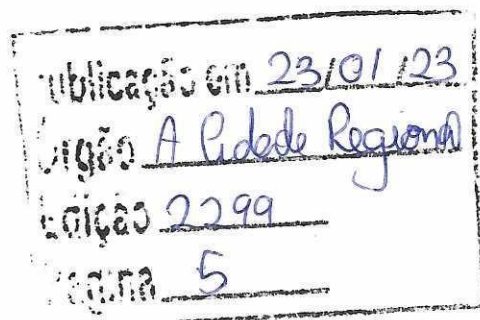 Publicação em 23/01/23
Órgão A Cidade Regional
Edição 2299
Página 5